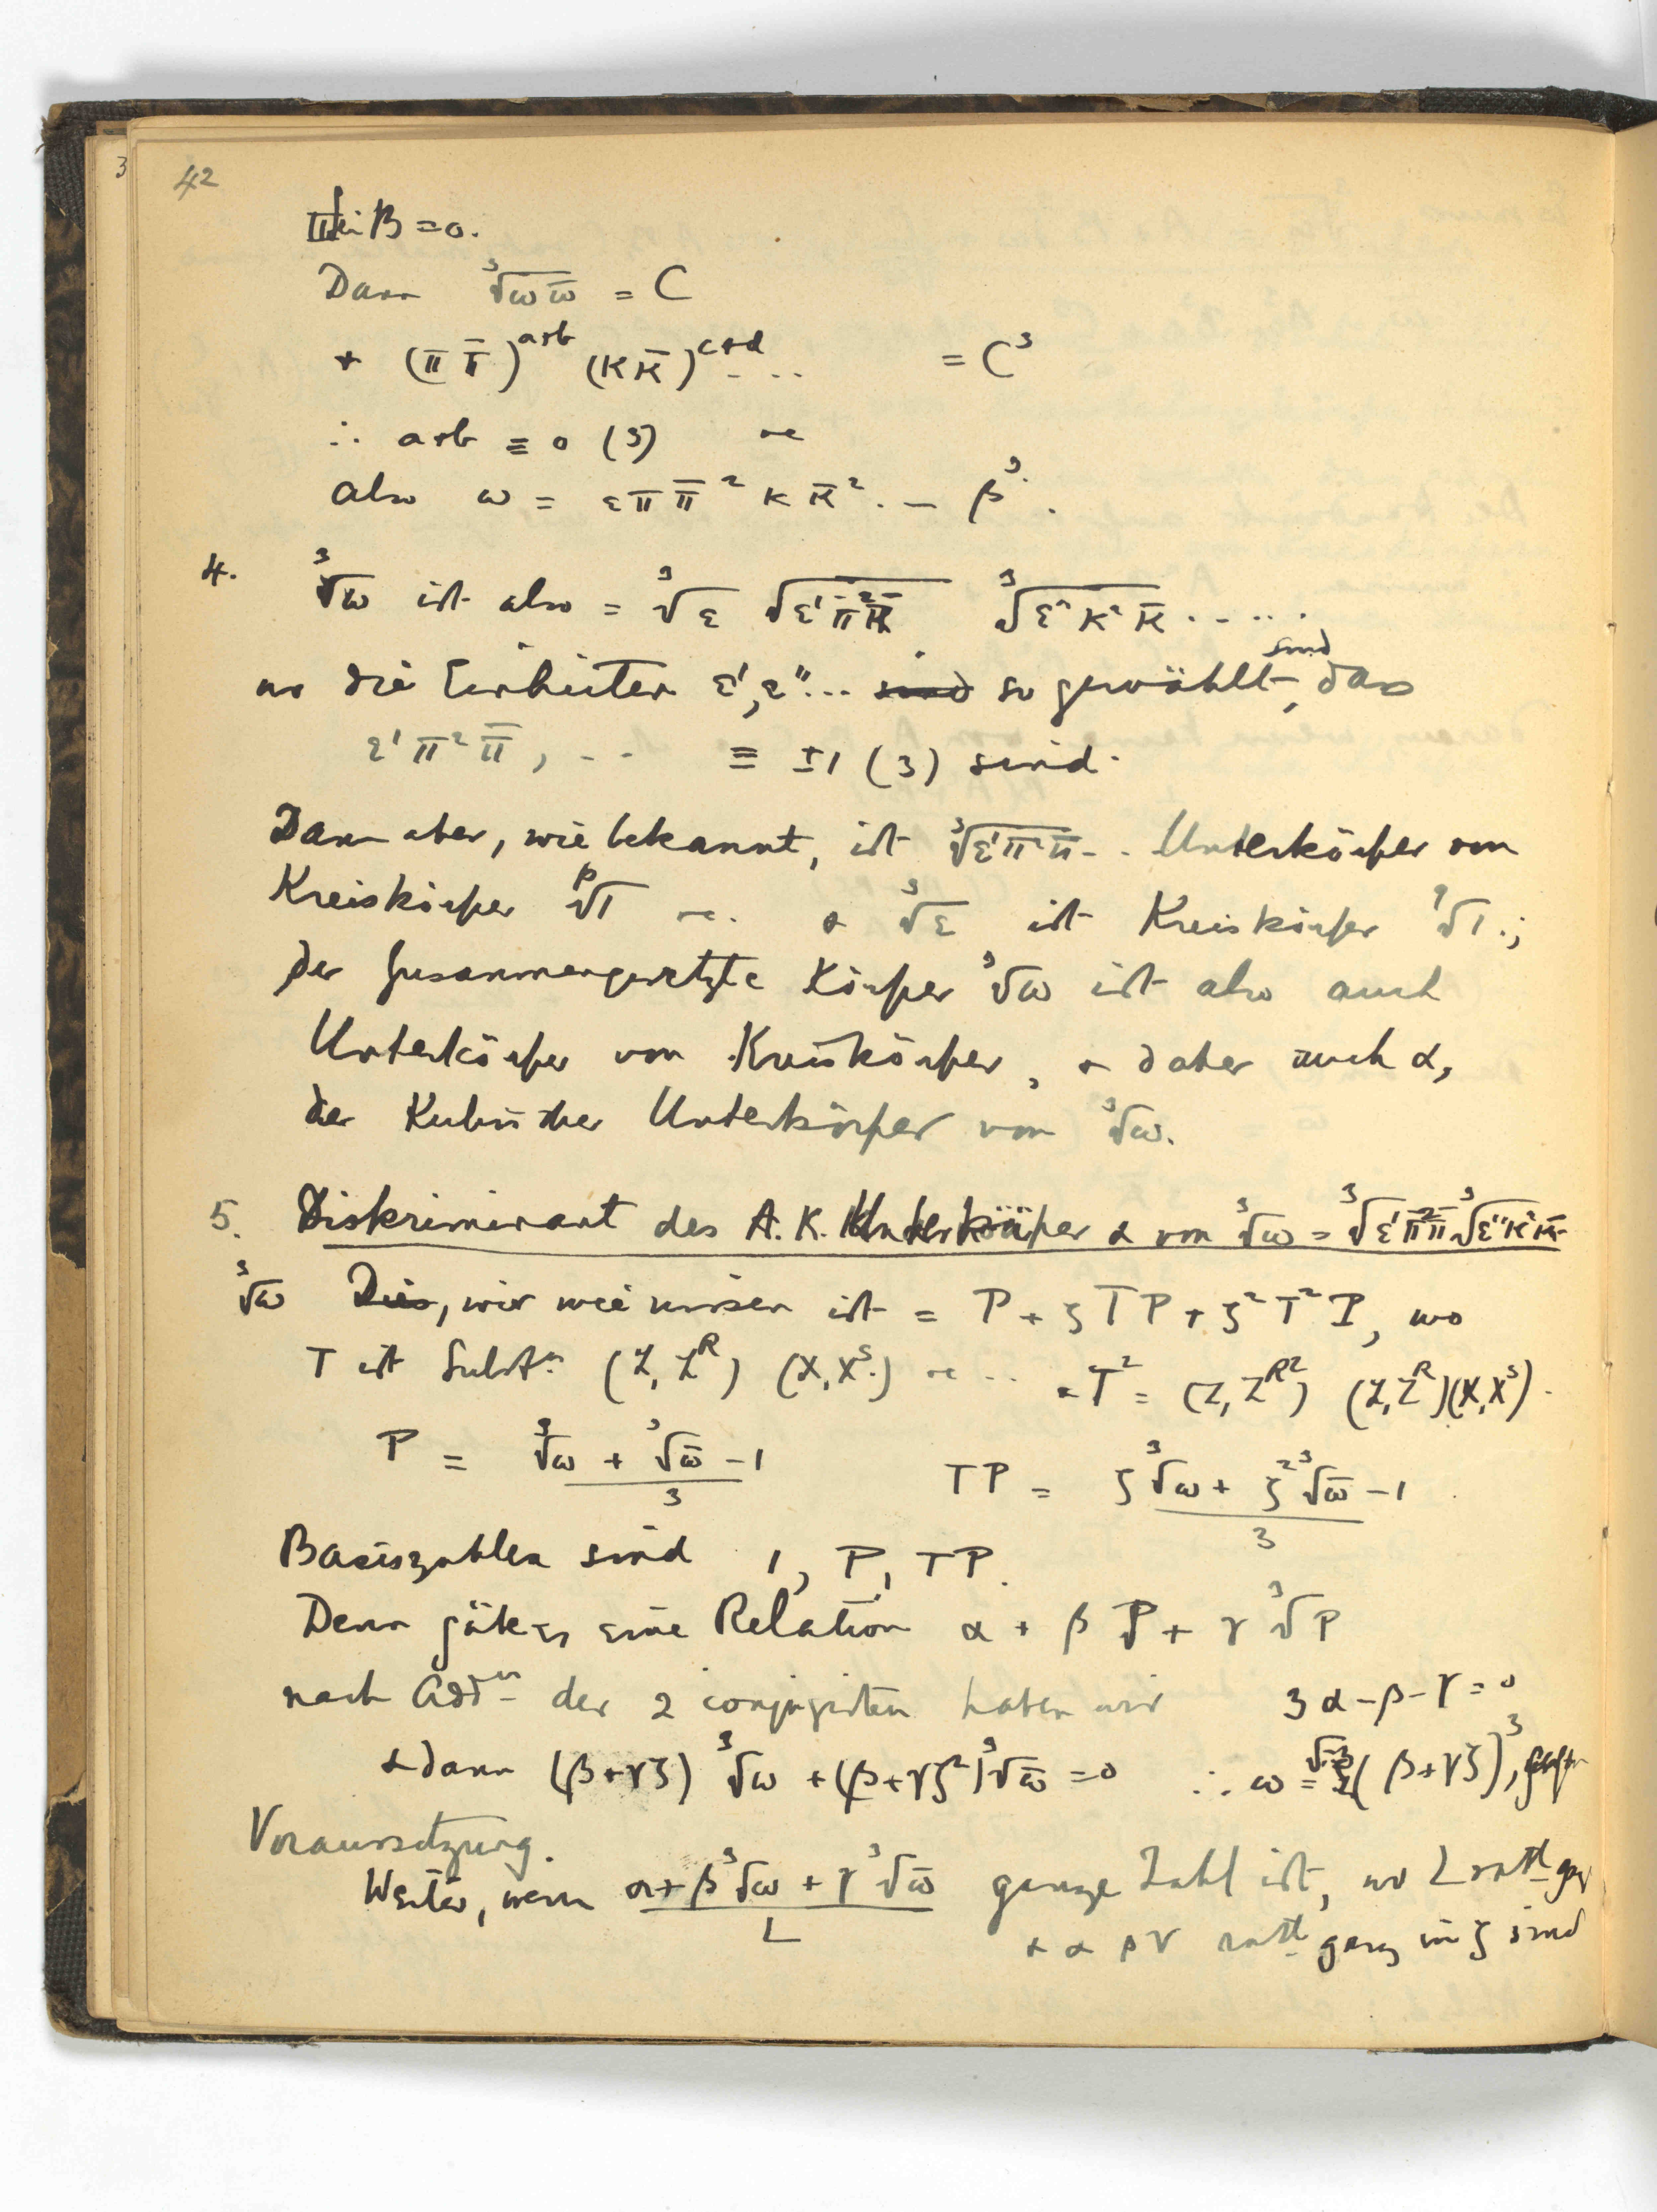 3
42
III. sei B = 0.
Dann ∛ωω̄ = C
+ (π π̄)^{a+b} (κ κ̄)^{c+d} . . . . = C³
∴ a+b ≡ 0 (3) etc
also ω = ε π π̄² κ κ̄² . – β³.
4. ∛ω ist also = ∛ε √ε'π²π̄ ∛ε"κ²κ̄ . . . . .
wo die Einheiten ε', ε"... so gewählt sind, dass
ε' π² π̄, . . ≡ ±1 (3) sind.
Dann aber, wie bekannt, ist ∛ε'π²π̄ - . Unterkörper von
Kreiskörper ᵖ√1 etc. + ∛ε ist Kreiskörper ⁹√1.;
der zusammengesetzte Körper ∛ω ist also auch
Unterkörper von Kreiskörper, + daher auch α,
der Kubischer Unterkörper von ∛ω.
5. Diskriminant des A.K. Unterkörper α von ∛ω = ∛ε'π²π̄ ∛ε"κ²κ̄
∛ω Dies, wir wie wissen ist = P + ζ T P + ζ² T² P, wo
T ist Substⁿ (Z, Z^R) (X, X^S.) etc .. + T² = (Z, Z^{R²}) (Z, Z^R)(X, X^S).
P = (∛ω + ∛ω̄ – 1)/3 TP = (ζ∛ω + ζ²∛ω̄ – 1)/3
Basiszahlen sind 1, P, TP.
Denn gäbe es eine Relation α + β P + γ ∛P
nach Addⁿ der 2 conjugirten haben wir 3α – β – γ = 0
+ dann (β+γζ) ∛ω + (β+γζ²) ∛ω̄ = 0 ∴ ω = (β+γζ)³,
Voraussetzung.
Weiter, wenn (α + β∛ω + γ∛ω̄)/L ganze Zahl ist, wo L ratl ganz
+ α β γ ratl ganz in ζ sind